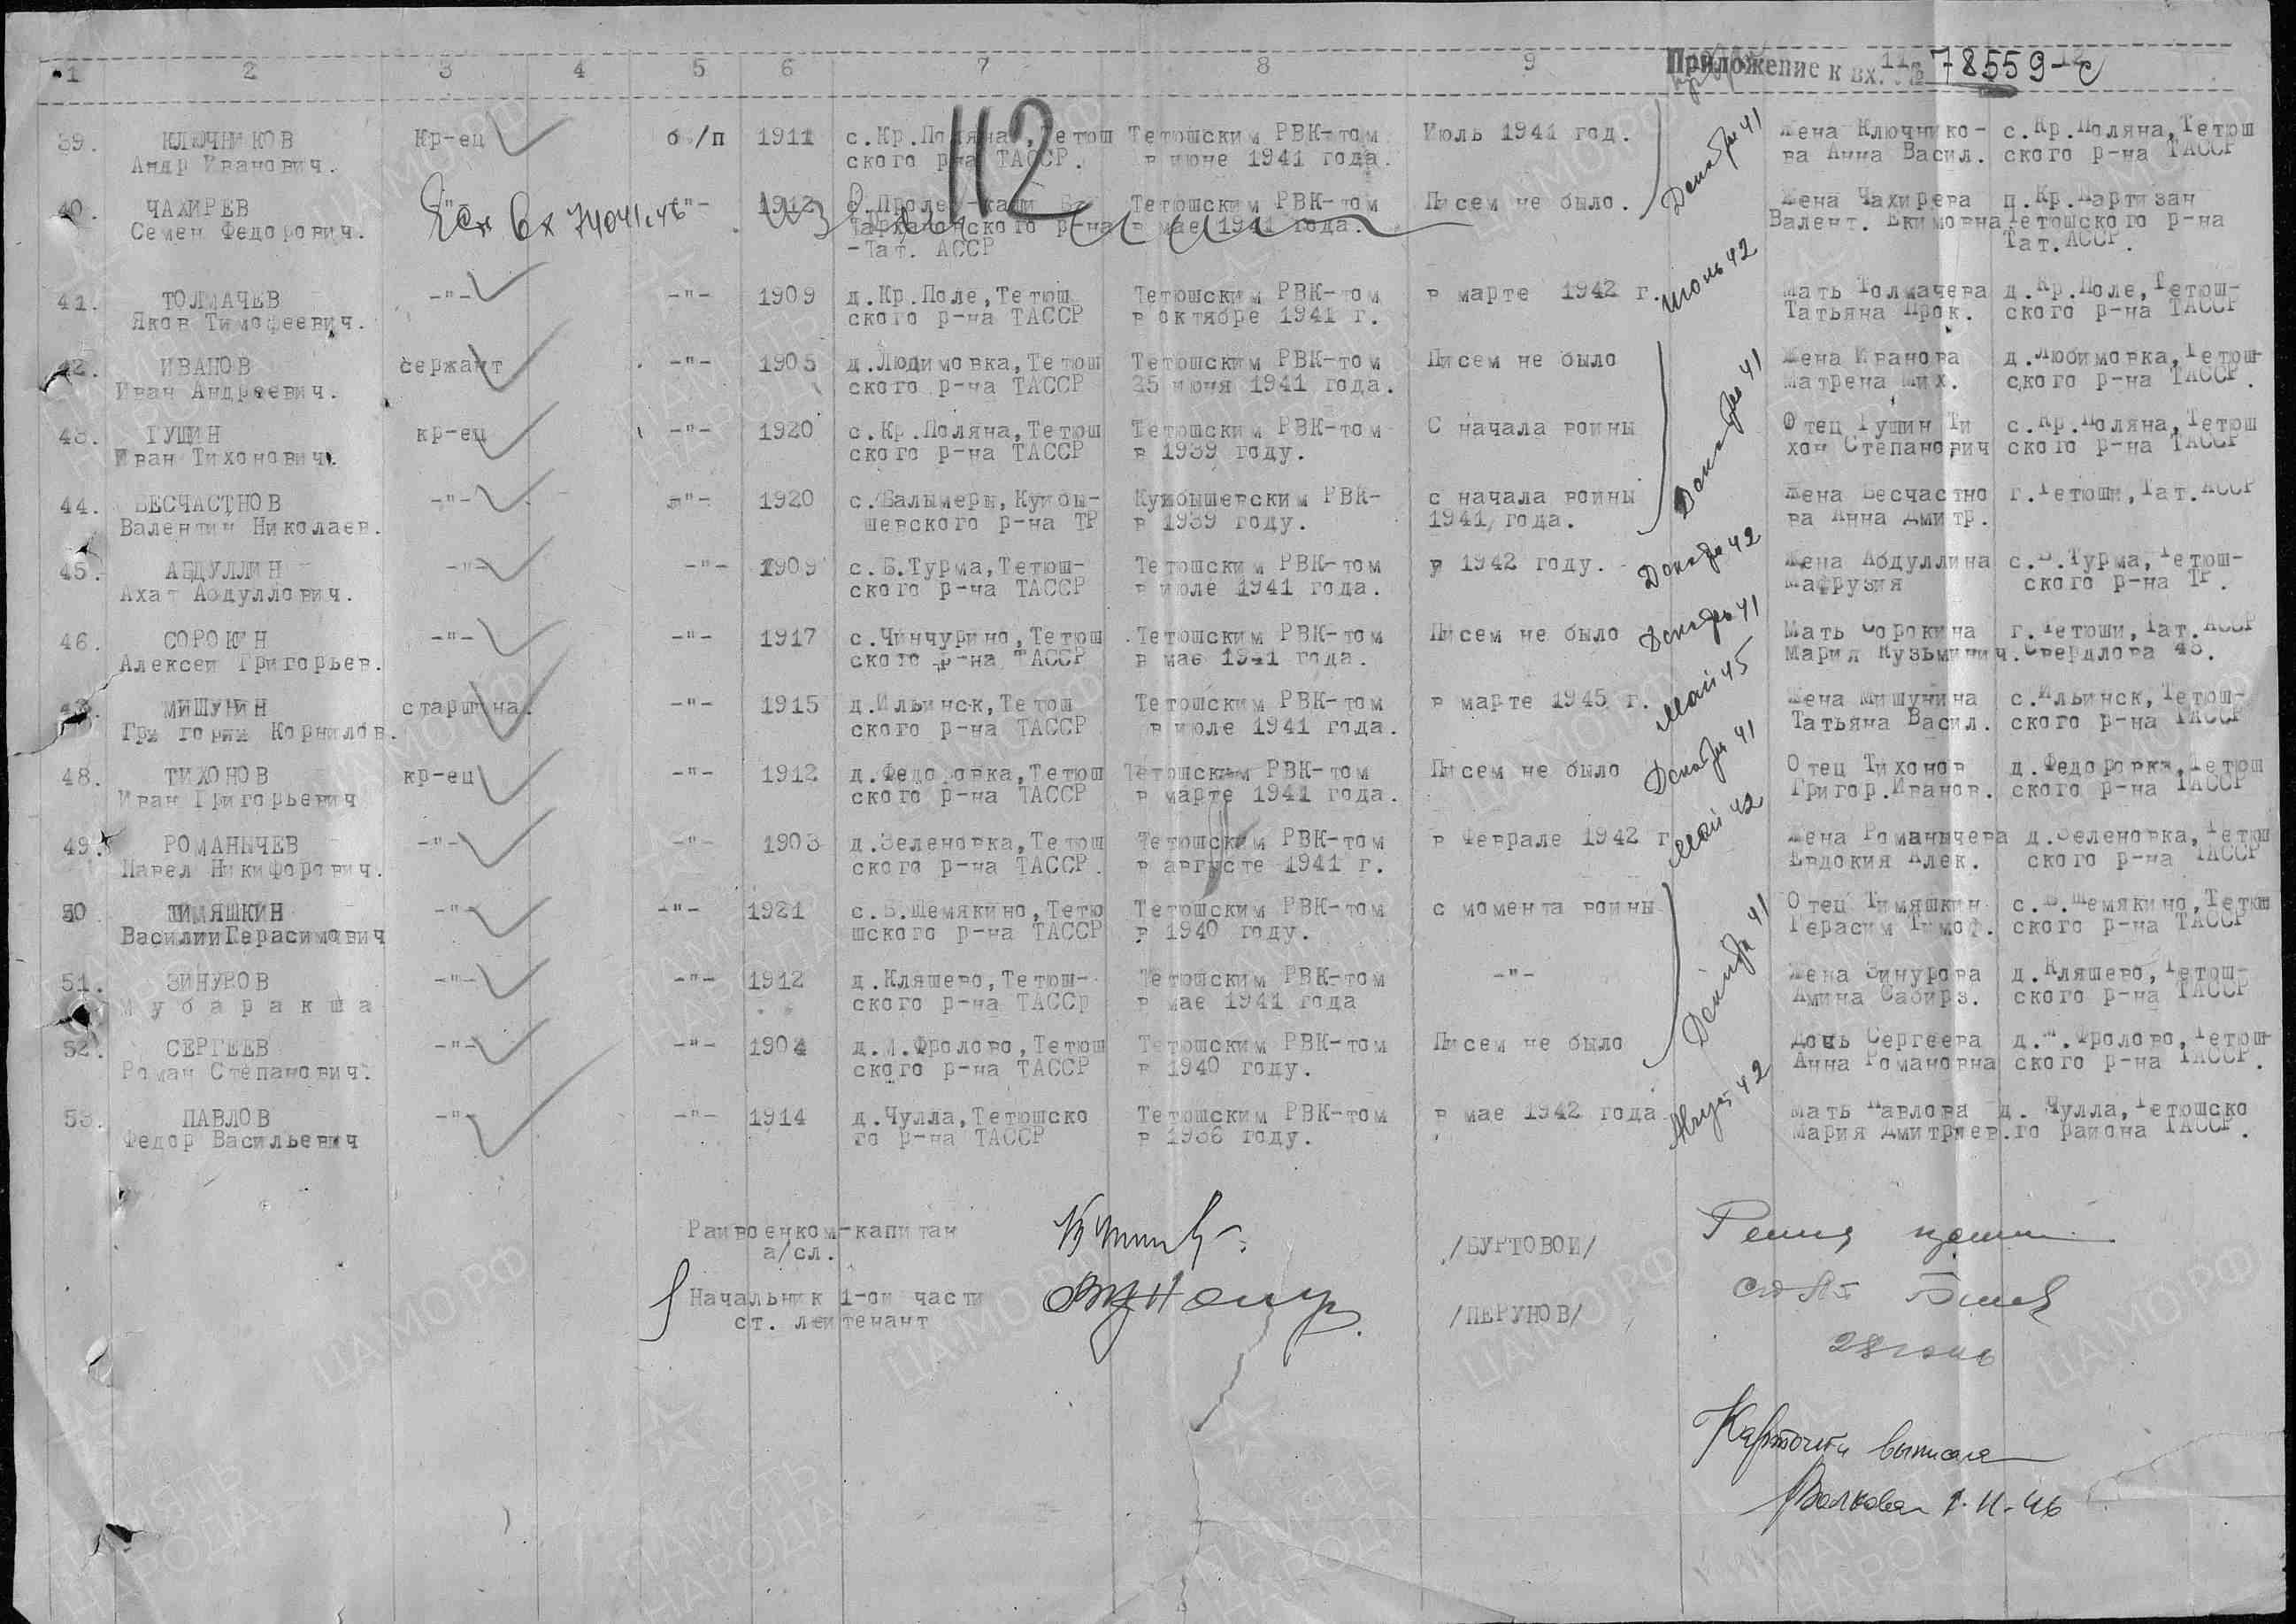 Приложение к вх. № 78559-с
1 2 3 4 5 6 7 8 9 11 12
112
39. КЛЮЧНИКОВ кр-ец б/п 1911 с.Кр.Поляна, Тетюш Тетюшским РВК-том Июль 1941 год. Декабрь 41 Жена Ключнико- с.Кр.Поляна, Тетюш
Андр Иванович. ского р-на ТАССР. в июне 1941 года. ва Анна Васил. ского р-на ТАССР
40. ЧАХИРЕВ -"- Есть вх 74041с46 -"- 1912 с.Пролей-каши Б. Тетюшским РВК-том Писем не было. Жена Чахирева п.Кр.Партизан
Семен Федорович. Тархановского р-на в мае 1941 года. Валент. Екимовна Тетюшского р-на
-Тат. АССР Тат.АССР.
41. ТОЛМАЧЕВ -"- -"- 1909 д.Кр.Поле, Тетюш Тетюшским РВК-том в марте 1942 г. июнь 42 Мать Толмачева д.Кр.Поле, Тетюш-
Яков Тимофеевич. ского р-на ТАССР в октябре 1941 г. Татьяна Прок. ского р-на ТАССР
42. ИВАНОВ сержант -"- 1905 д.Людимовка, Тетюш Тетюшским РВК-том Писем не было Декабрь 41 Жена Иванова д.Любимовка, Тетюш-
Иван Андреевич. ского р-на ТАССР 25 июня 1941 года. Матрена Мих. ского р-на ТАССР.
43. ГУЩИН кр-ец -"- 1920 с.Кр.Поляна, Тетюш Тетюшским РВК-том С начала войны Отец Гущин Ти с.Кр.Поляна, Тетюш
Иван Тихонович. ского р-на ТАССР в 1939 году. хон Степанович ского р-на ТАССР
44. БЕСЧАСТНОВ -"- -"- 1920 с.Балымеры, Куйбы- Куйбышевским РВК- с начала войны Жена Бесчастно г.Тетюши, Тат.АССР
Валентин Николаев. шевского р-на ТР в 1939 году. 1941 года. ва Анна Дмитр.
45. АБДУЛЛИН -"- -"- 1909 с.Б.Турма, Тетюш- Тетюшским РВК-том в 1942 году. Декабрь 42 Жена Абдуллина с.Б.Турма, Тетюш-
Ахат Абдуллович. ского р-на ТАССР в июле 1941 года. Мафрузия ского р-на ТР.
46. СОРОКИН -"- -"- 1917 с.Чинчурино, Тетюш Тетюшским РВК-том Писем не было Декабрь 41 Мать Сорокина г.Тетюши, Тат.АССР
Алексей Григорьев. ского р-на ТАССР в мае 1941 года. Мария Кузьминич. Свердлова 43.
47. МИШУНИН старшина. -"- 1915 д.Ильинск, Тетюш Тетюшским РВК-том в марте 1945 г. Май 45 Жена Мишунина с.Ильинск, Тетюш-
Григорий Корнилов. ского р-на ТАССР в июле 1941 года. Татьяна Васил. ского р-на ТАССР
48. ТИХОНОВ кр-ец -"- 1912 д.Федоровка, Тетюш Тетюшским РВК-том Писем не было Декабрь 41 Отец Тихонов д.Федоровка, Тетюш
Иван Григорьевич ского р-на ТАССР в марте 1941 года. Григор.Иванов. ского р-на ТАССР
49. РОМАНЫЧЕВ -"- -"- 1903 д.Зеленовка, Тетюш Тетюшским РВК-том в Феврале 1942 г Май 42 Жена Романычева д.Зеленовка, Тетюш
Павел Никифорович. ского р-на ТАССР. в августе 1941 г. Евдокия Алек. ского р-на ТАССР
50 ТИМЯШКИН -"- -"- 1921 с.Б.Шемякино, Тетю Тетюшским РВК-том с момента войны Декабрь 41 Отец Тимяшкин с.Б.Шемякино, Тетюш
Василий Герасимович шского р-на ТАССР в 1940 году. Герасим Тимоф. ского р-на ТАССР
51. ЗИНУРОВ -"- -"- 1912 д.Кляшево, Тетюш- Тетюшским РВК-том -"- Жена Зинурова д.Кляшево, Тетюш-
Мубаракша ского р-на ТАССр в мае 1941 года Амина Сабирз. ского р-на ТАССР
52. СЕРГЕЕВ -"- -"- 1904 д.М.Фролово, Тетюш Тетюшским РВК-том Писем не было Дочь Сергеева д.М.Фролово, Тетюш-
Роман Степанович. ского р-на ТАССР в 1940 году. Анна Романовна ского р-на ТАССР.
53. ПАВЛОВ -"- -"- 1914 д.Чулла, Тетюшско Тетюшским РВК-том в мае 1942 года Август 42 Мать Павлова д. Чулла, Тетюшско
Федор Васильевич го р-на ТАССР в 1936 году. Мария Дмитриев. го района ТАССР.
Райвоенком-капитан
а/сл. /БУРТОВОЙ/
Начальник 1-ой части
ст. лейтенант /ПЕРУНОВ/
Карточки выписала
Волкова 1.11.46